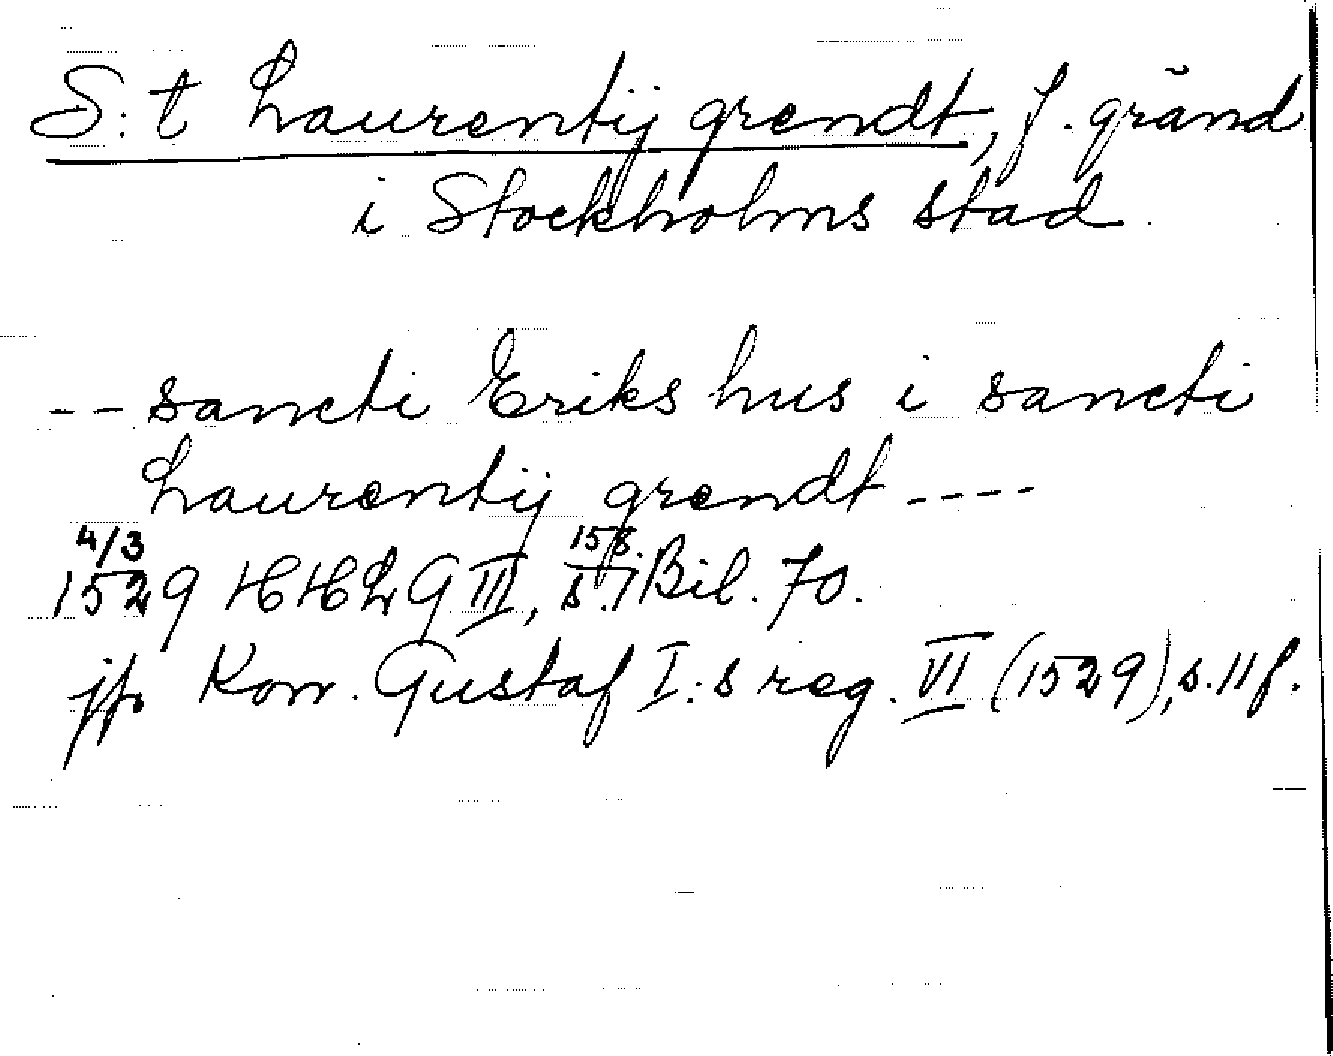 S:t Laurentij grendt, f. gränd
i Stockholms stad.
-- sancti Eriks hus i sancti
Laurentij grendt ----
4/3
1529 HHLG III, Bil. 70.
jfr Kon. Gustaf I:s reg. VI (1529), s. 11 f.